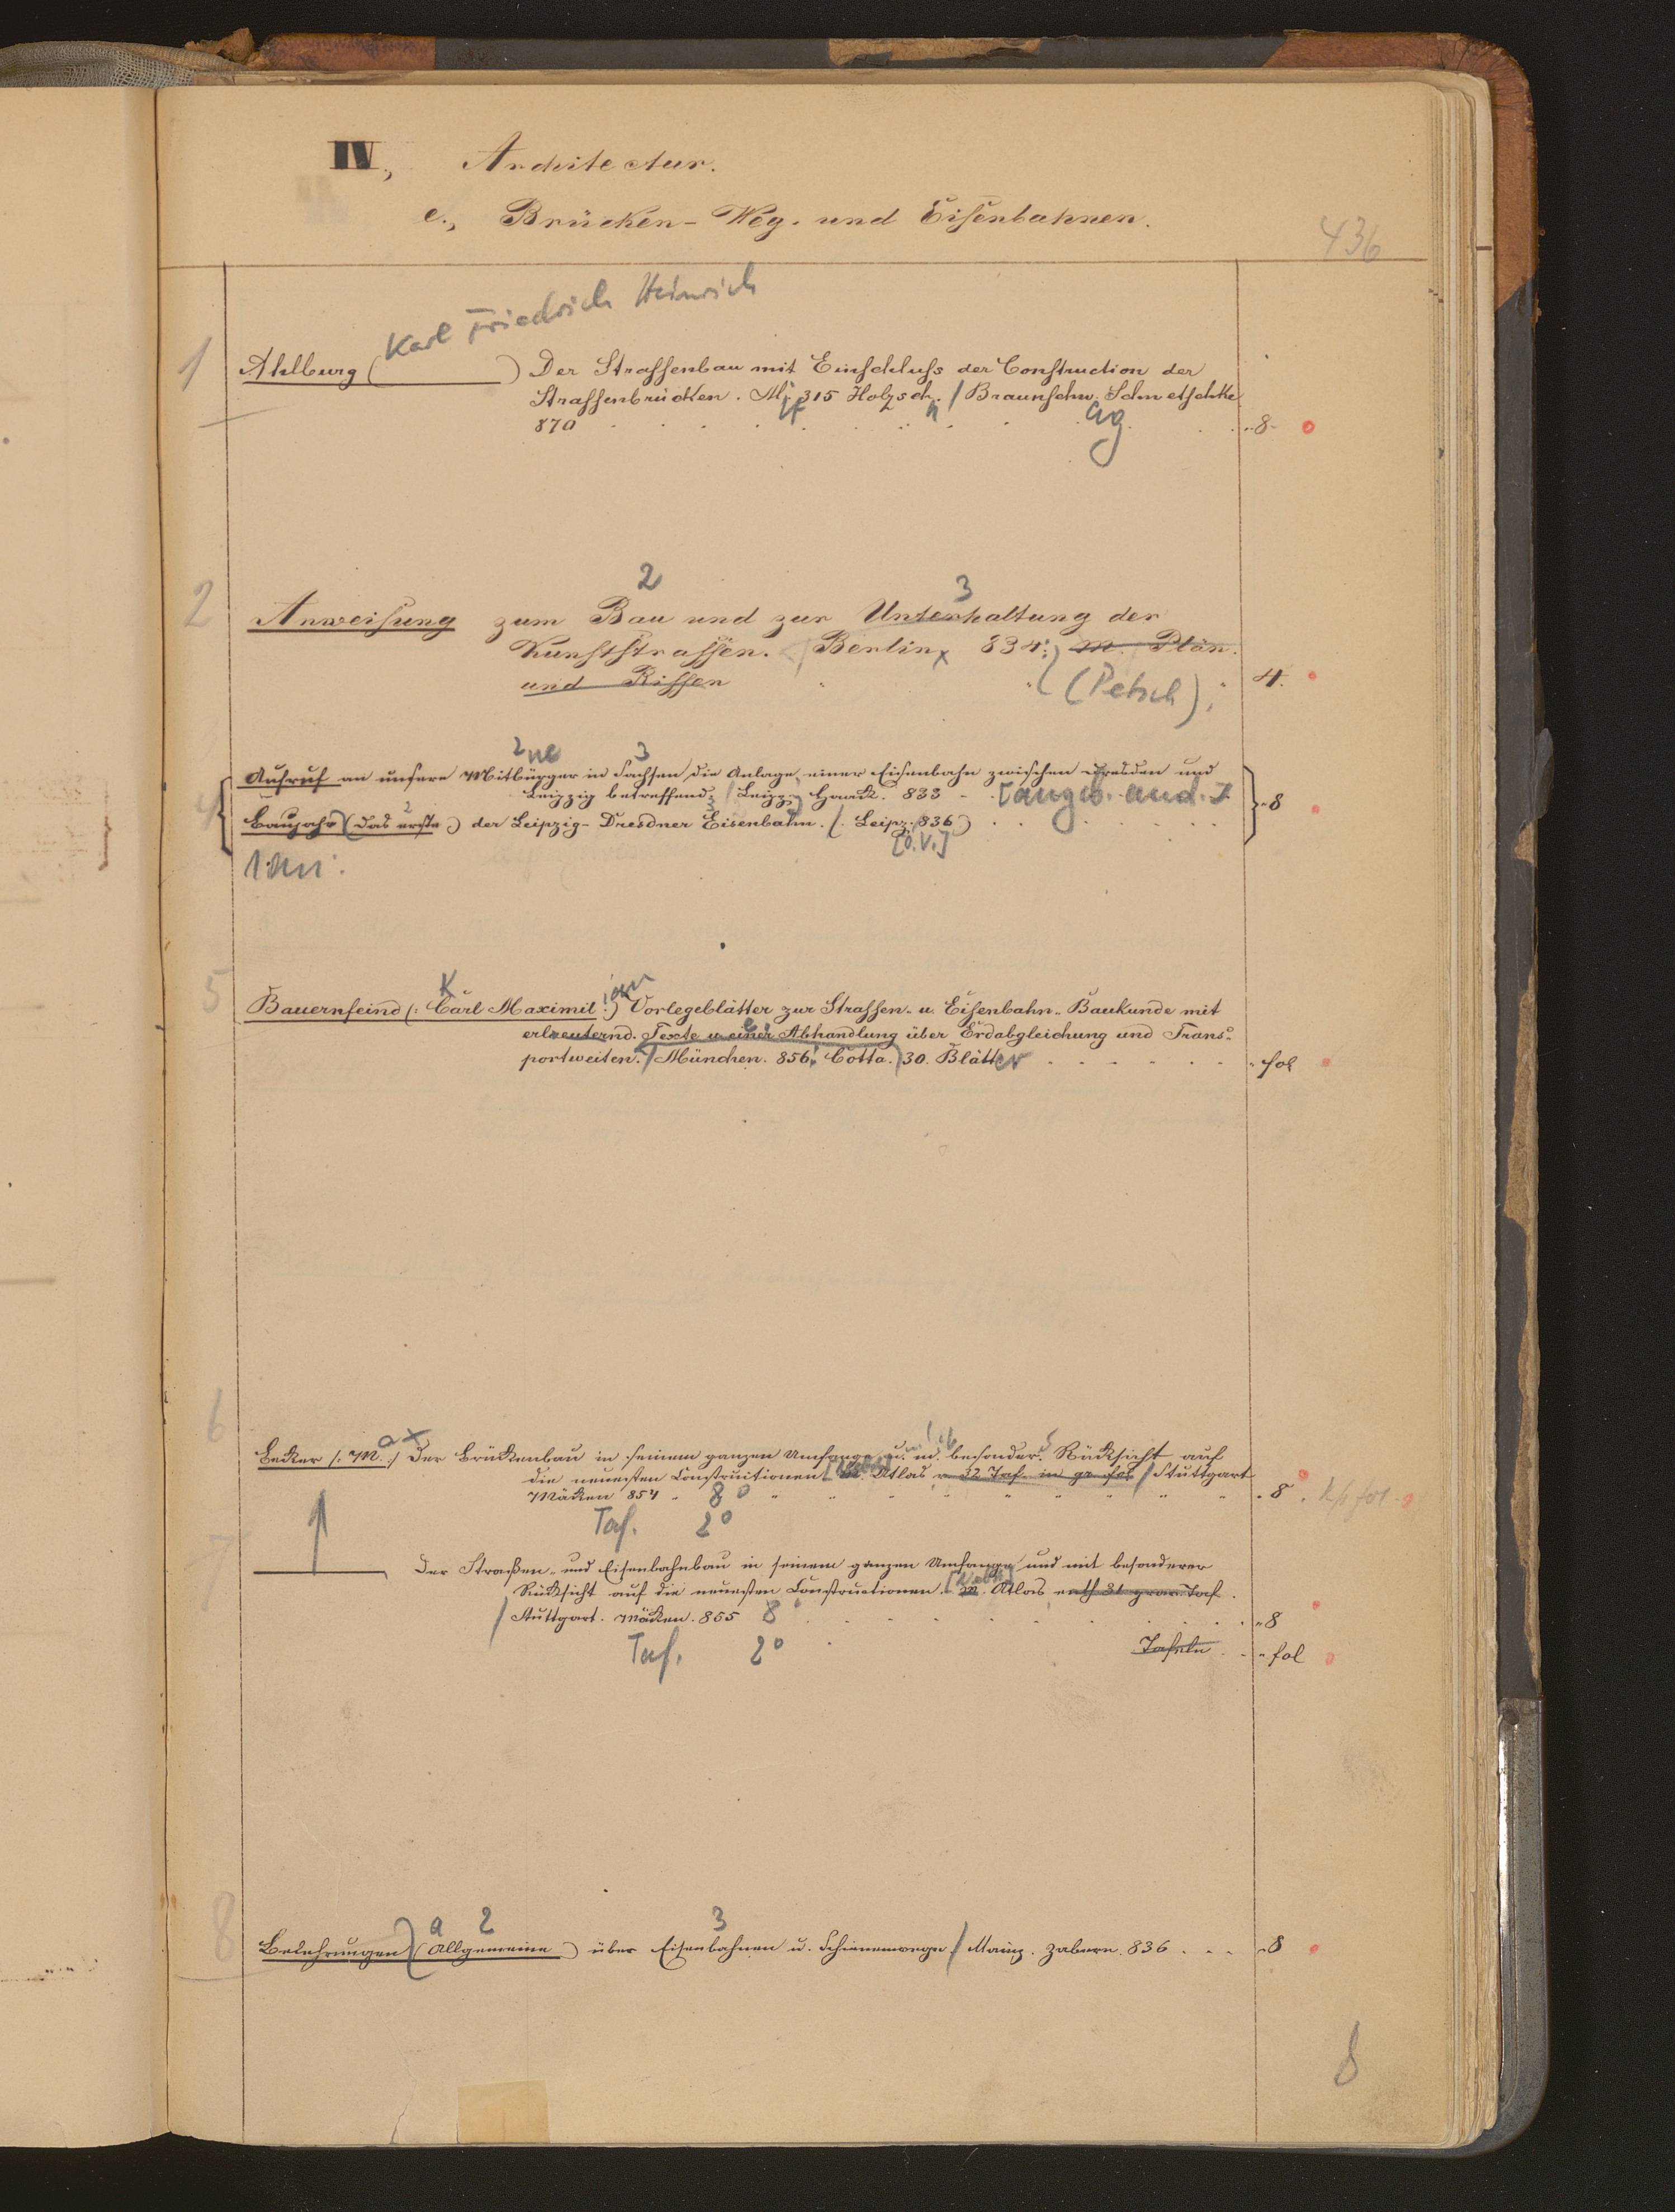 IV, Architectur.
e., Brücken- Weg- und Eisenbahnen.
436
Karl Friedrich Heinrich
1 Ahlburg ( ) Der Strassenbau mit Einschluss der Construction der
Strassenbrücken. M. 315 Holzsch. / Braunschw. Schwetschke
870 8
2 3
2 Anweisung zum Bau und zur Unterhaltung der
Kunststrassen. Berlin 834; m. Plän.
und Rissen (Petsch), 4.
2 3
Aufruf an unsere Mitbürger in Sachsen, die Anlage einer Eisenbahn zwischen Dresden und
Leipzig betreffend; Leipzg 833 [angeb. and. 8
4 Baujahr (das erste) der Leipzig-Dresdner Eisenbahn. (Leipz. 836)
[o.V.]
1 an:
K ian
5 Bauernfeind (: Carl Maximil:) Vorlegeblätter zur Strassen- u. Eisenbahn-Baukunde mit
erleuternd. Texte u einer Abhandlung über Erdabgleichung und Trans-
portweiten. / München. 856. Cotta. 30. Blätter fol
6 ax
Becker /: M. :/ Der Brückenbau in seinem ganzen Umfange u. m. besonder. Rücksicht auf
die neuesten Construitionen m. Atlas v 32 Taf. in gr fol / Stuttgart
Mäcken 854 8° 8. fol
Taf. 2°
7 Der Straßen- und Eisenbahnbau in seinem ganzen Umfange und mit besonderer
Rücksicht auf die neuesten Constructionen. m. Atlas enth 31 Taf.
/ Stuttgart. Mäcken. 855 8° 8
Taf. 2° Tafeln fol
a 2 3
8 Belehrungen (Allgemeine) über Eisenbahnen u. Schienenwege / Mainz. Zabern. 836 8
8